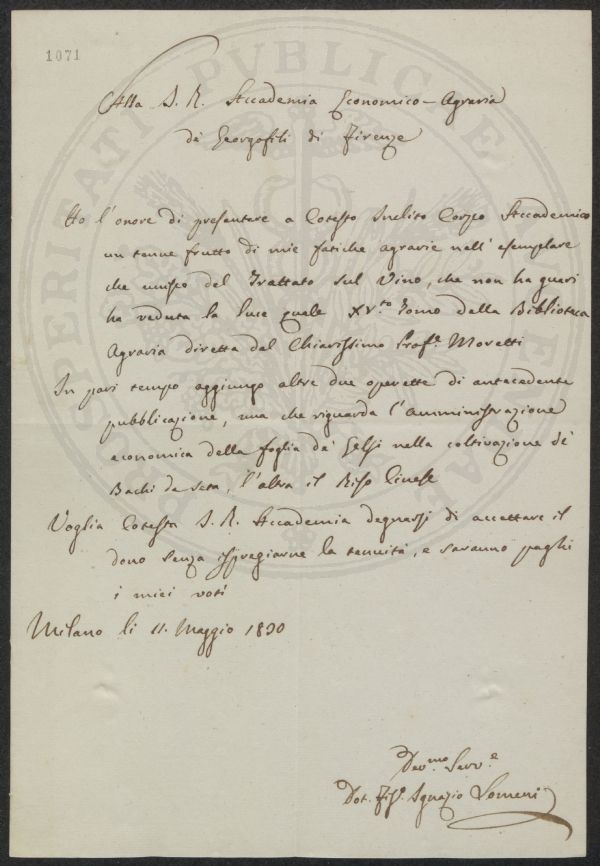 1071
Alla I. R. Accademia Economico-Agraria
de' Georgofili di Firenze
Ho l'onore di presentare a Cotesto Inclito Corpo Accademico
un tenue frutto di mie fatiche agrarie nell'esemplare
che unisco del Trattato sul Vino, che non ha guari
ha veduta la luce quale XV.to Tomo della Biblioteca
Agraria diretta dal Chiarissimo Prof.e Moretti
In pari tempo aggiungo altre due operette di antecedente
pubblicazione, una che riguarda l'amministrazione
economica della foglia de' Gelsi nella coltivazione de'
Bachi da seta, l'altra il Riso Cinese
Voglia Cotesta I. R. Accademia degnarsi di accettare il
dono senza ispregiarne la tenuità, e saranno paghi
i miei voti
Milano li 11. Maggio 1830
Dev.mo Serv.e
Dot. Fis.o Ignazio Lomeni
PROSPERITATI PUBLICAE